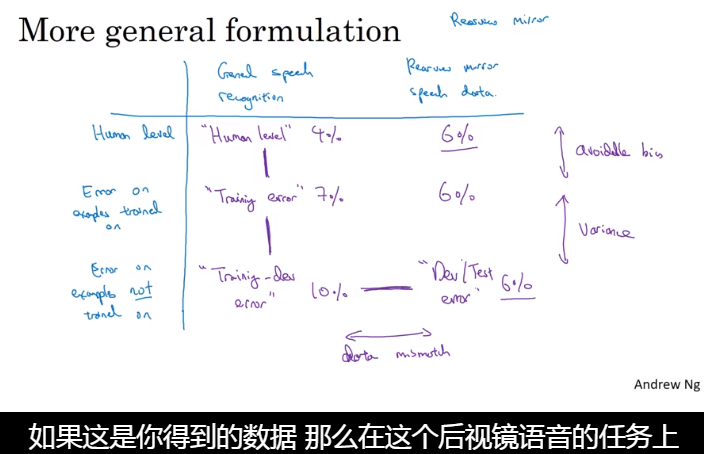 More general formulation
Rearview mirror
General speech
recognition
Rearview mirror
speech data.
Human level
"Human level" 4%
6%
avoidable bias
Error on
examples trained
on
"Training error" 7%
6%
Variance
Error on
examples not
trained on
"Training-dev
error"
10%
"Dev/Test
error"
6%
data mismatch
Andrew Ng
如果这是你得到的数据 那么在这个后视镜语音的任务上